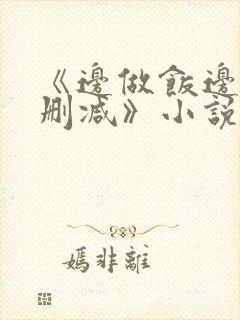 《邊做飯邊
刪減》小說
嫣非離